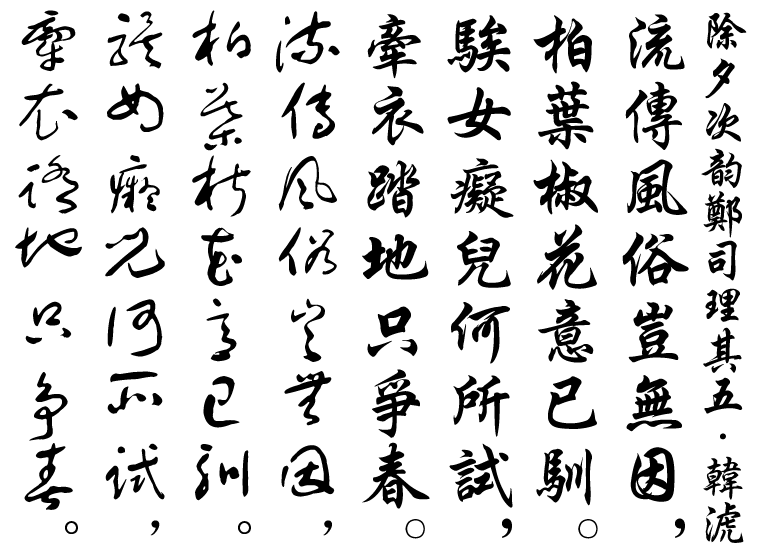 除夕次韵鄭司理其五·韓淲
流傳風俗豈無因，
柏葉椒花意已馴。
騃女癡兒何所試，
牽衣踏地只爭春。
流傳風俗豈無因，
柏葉椒花意已馴。
騃女癡兒何所試，
牽衣踏地只爭春。